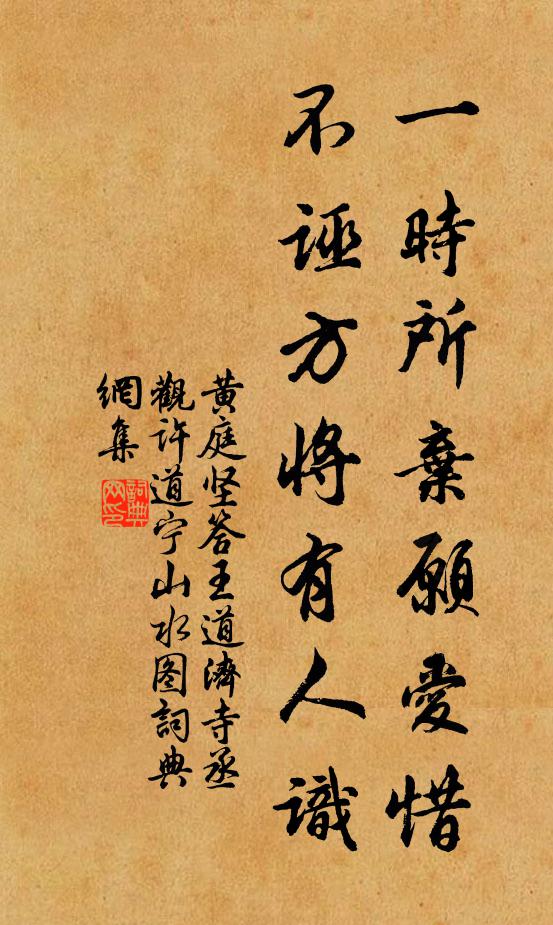 一時所棄願愛惜
不誣方將有人識
黄庭坚答王道濟寺丞
觀许道宁山水图詞典
網集
詞典網印